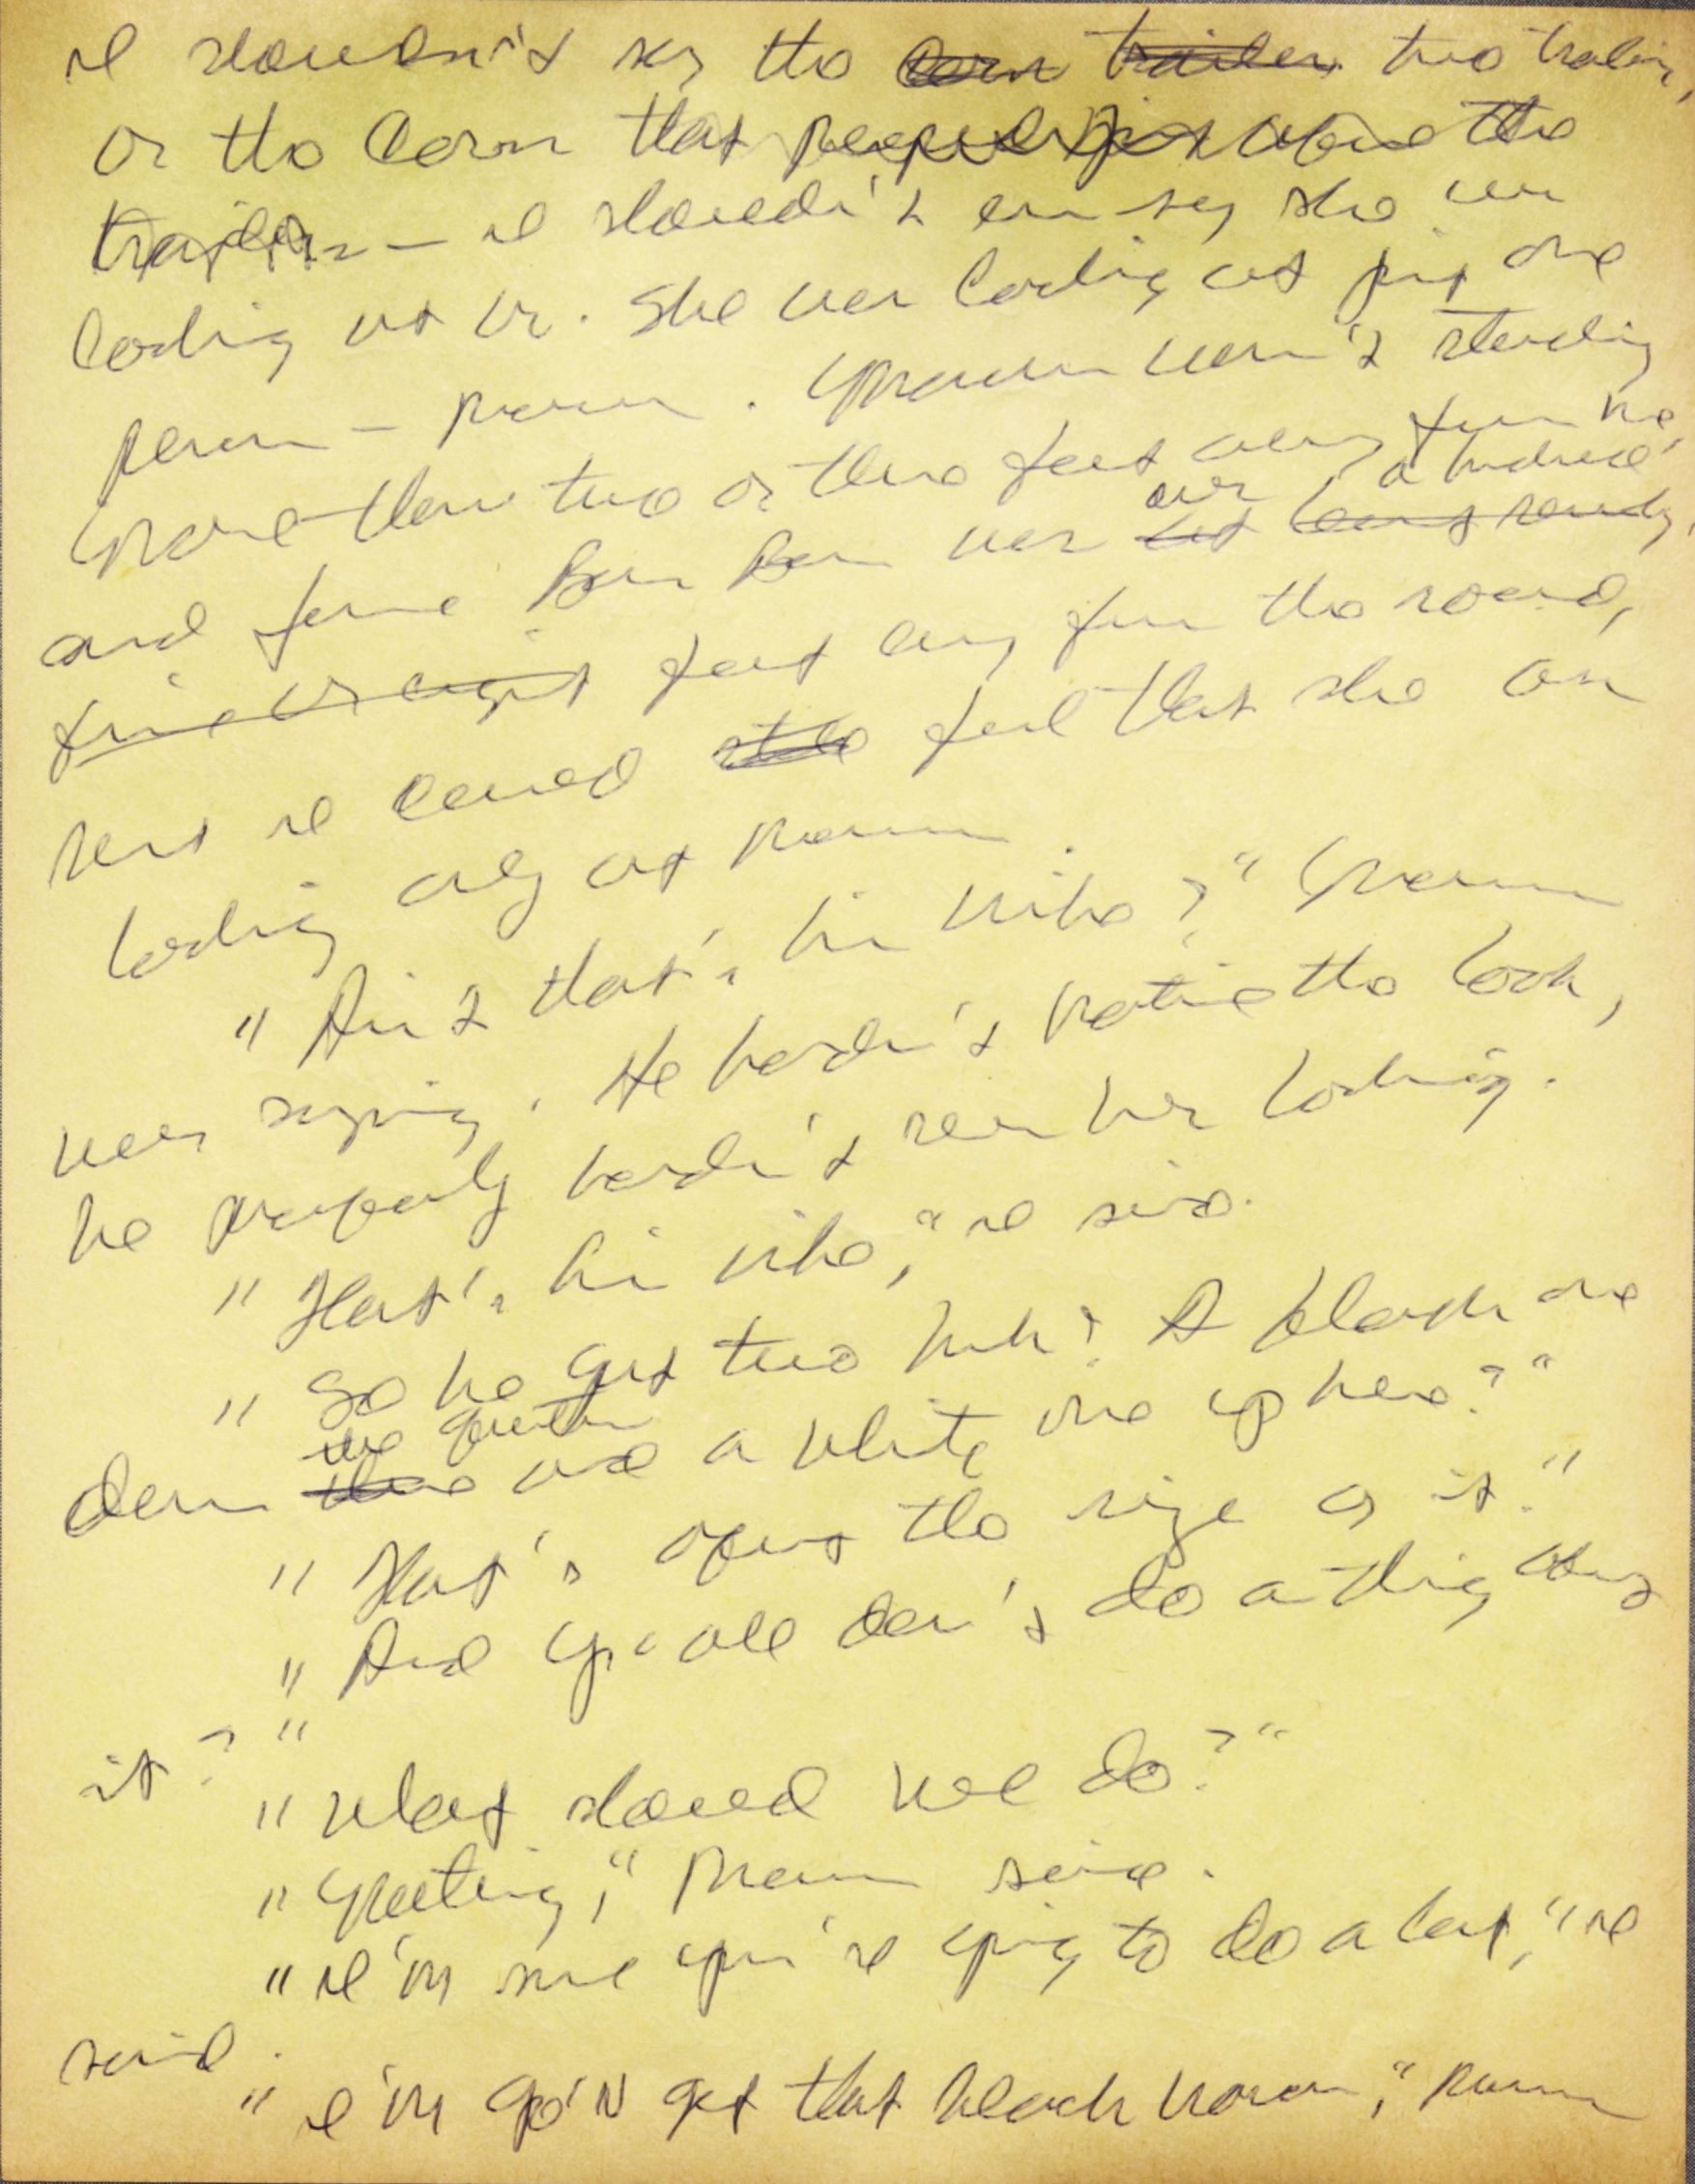 I shouldn't say the corn trailer two trailers,
or the corn that people just above the
trailers — I shouldn't even say she was
looking at us. She was looking at just one
person — Marcus. Marcus wasn't standing
more than two or three feet away from me,
over a hundred
and from Bon Bon was at least seventy
five or eight feet away from the road,
but I could feel that she was
looking only at Marcus.
"Ain't that's his wife?" Marcus
was saying. He hadn't noticed the look,
he probably hadn't seen her looking.
"That's his wife," I said.
"So he got two, huh? A black one
the quarter
down there and a white one up here?"
"That's about the size of it."
"And you all don't do a thing about
it?"
"What should we do?"
"Nothing," Marcus said.
"I'm sure you're going to do a lot," I
said.
"I'm go'n get that black woman," Marcus